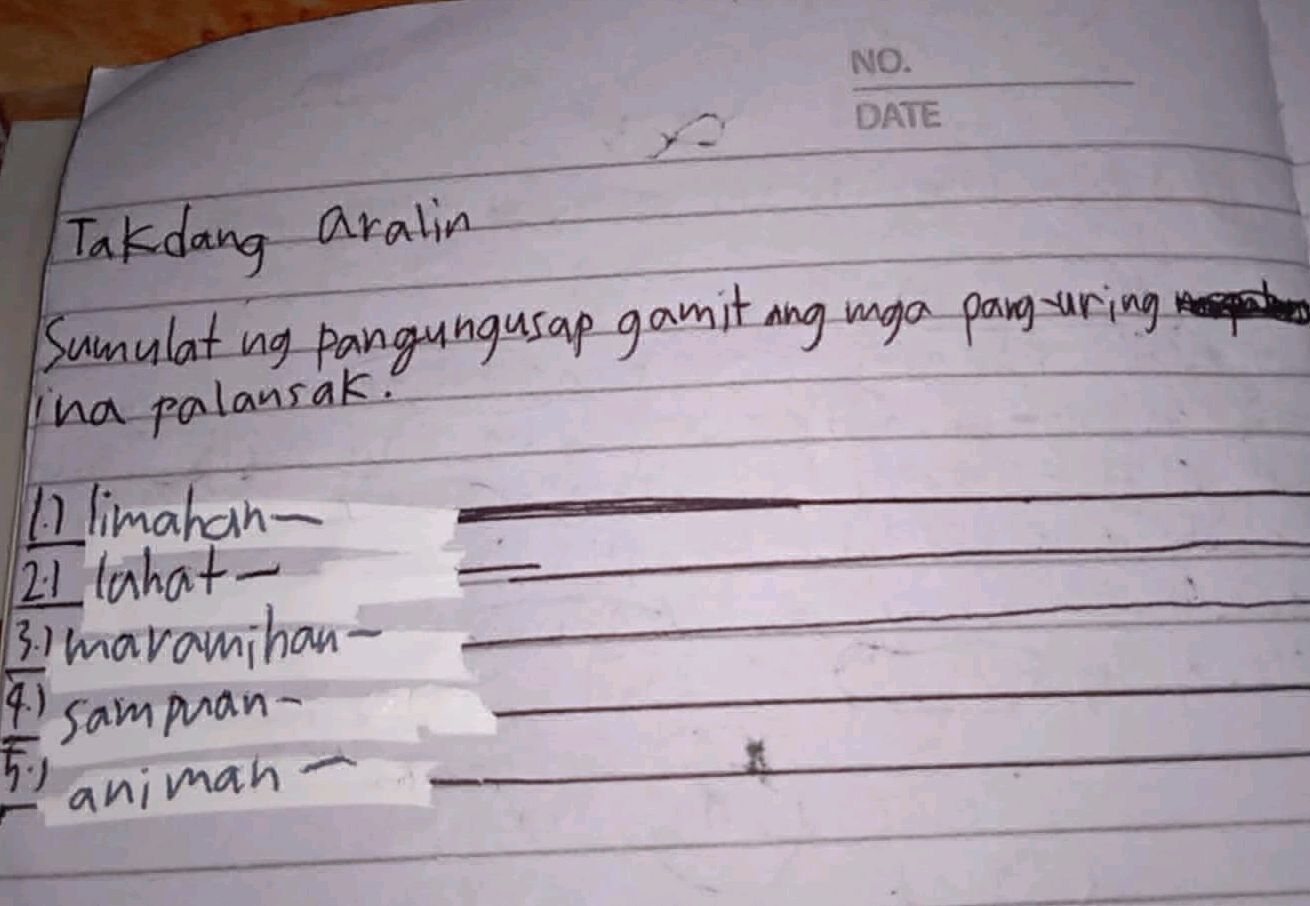 NO.
DATE
Takdang aralin
Sumulat ng pangungusap gamit ang mga pang-uring
ina palansak.
1.) limahan-
2.) lahat-
3.) maramihan-
4.) sampuan-
5.) animan-